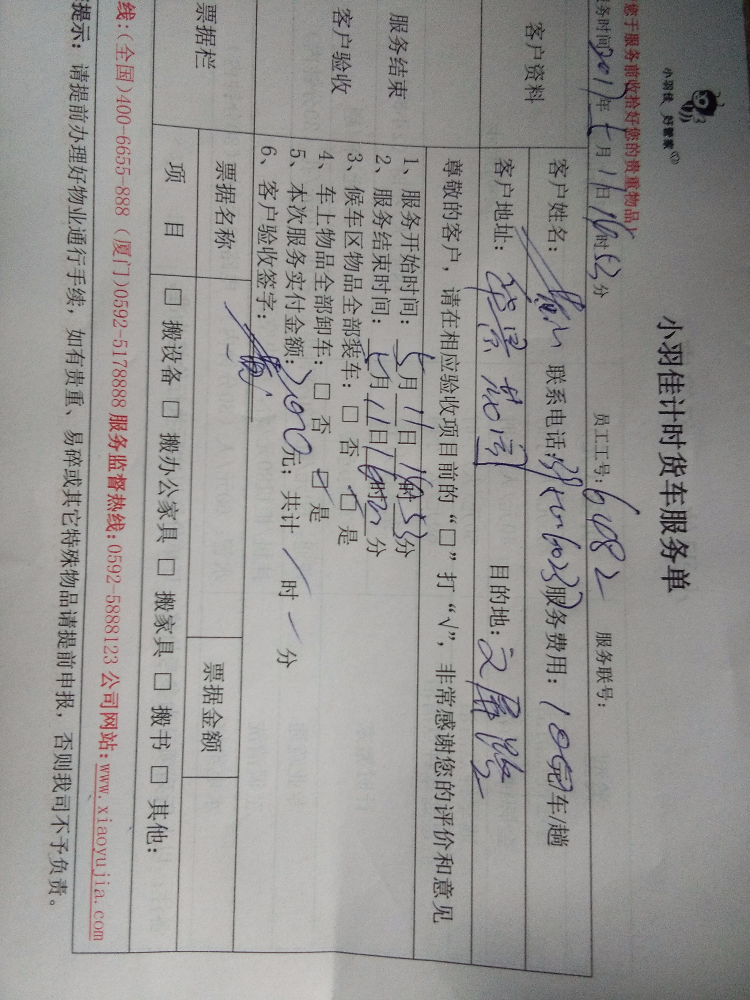 小羽佳 好管家
小羽佳计时货车服务单
您于服务前收拾好您的贵重物品)
务时间2017年5月11日16时53分 员工工号:6082 服务联号:
客户资料
客户姓名: 联系电话: 服务费用: 100元/车/趟
客户地址: 目的地:文屏路
尊敬的客户，请在相应验收项目前的“□”打“√”，非常感谢您的评价和意见
服务结束
客户验收
1、服务开始时间:5月11日16时53分
2、服务结束时间:5月11日 时 分
3、候车区物品全部装车: □ 否 □ 是
4、车上物品全部卸车: □ 否 □ 是
5、本次服务实付金额: 元; 共计 / 时 / 分
6、客户验收签字:
票据栏
票据名称 票据金额
项 目 □ 搬设备 □ 搬办公家具 □ 搬家具 □ 搬书 □ 其他:
线:(全国)400-6655-888 (厦门)0592-5178888 服务监督热线:0592-5888123 公司网站:www.xiaoyujia.com
提示: 请提前办理好物业通行手续, 如有贵重、易碎或其它特殊物品请提前申报, 否则我司不予负责。